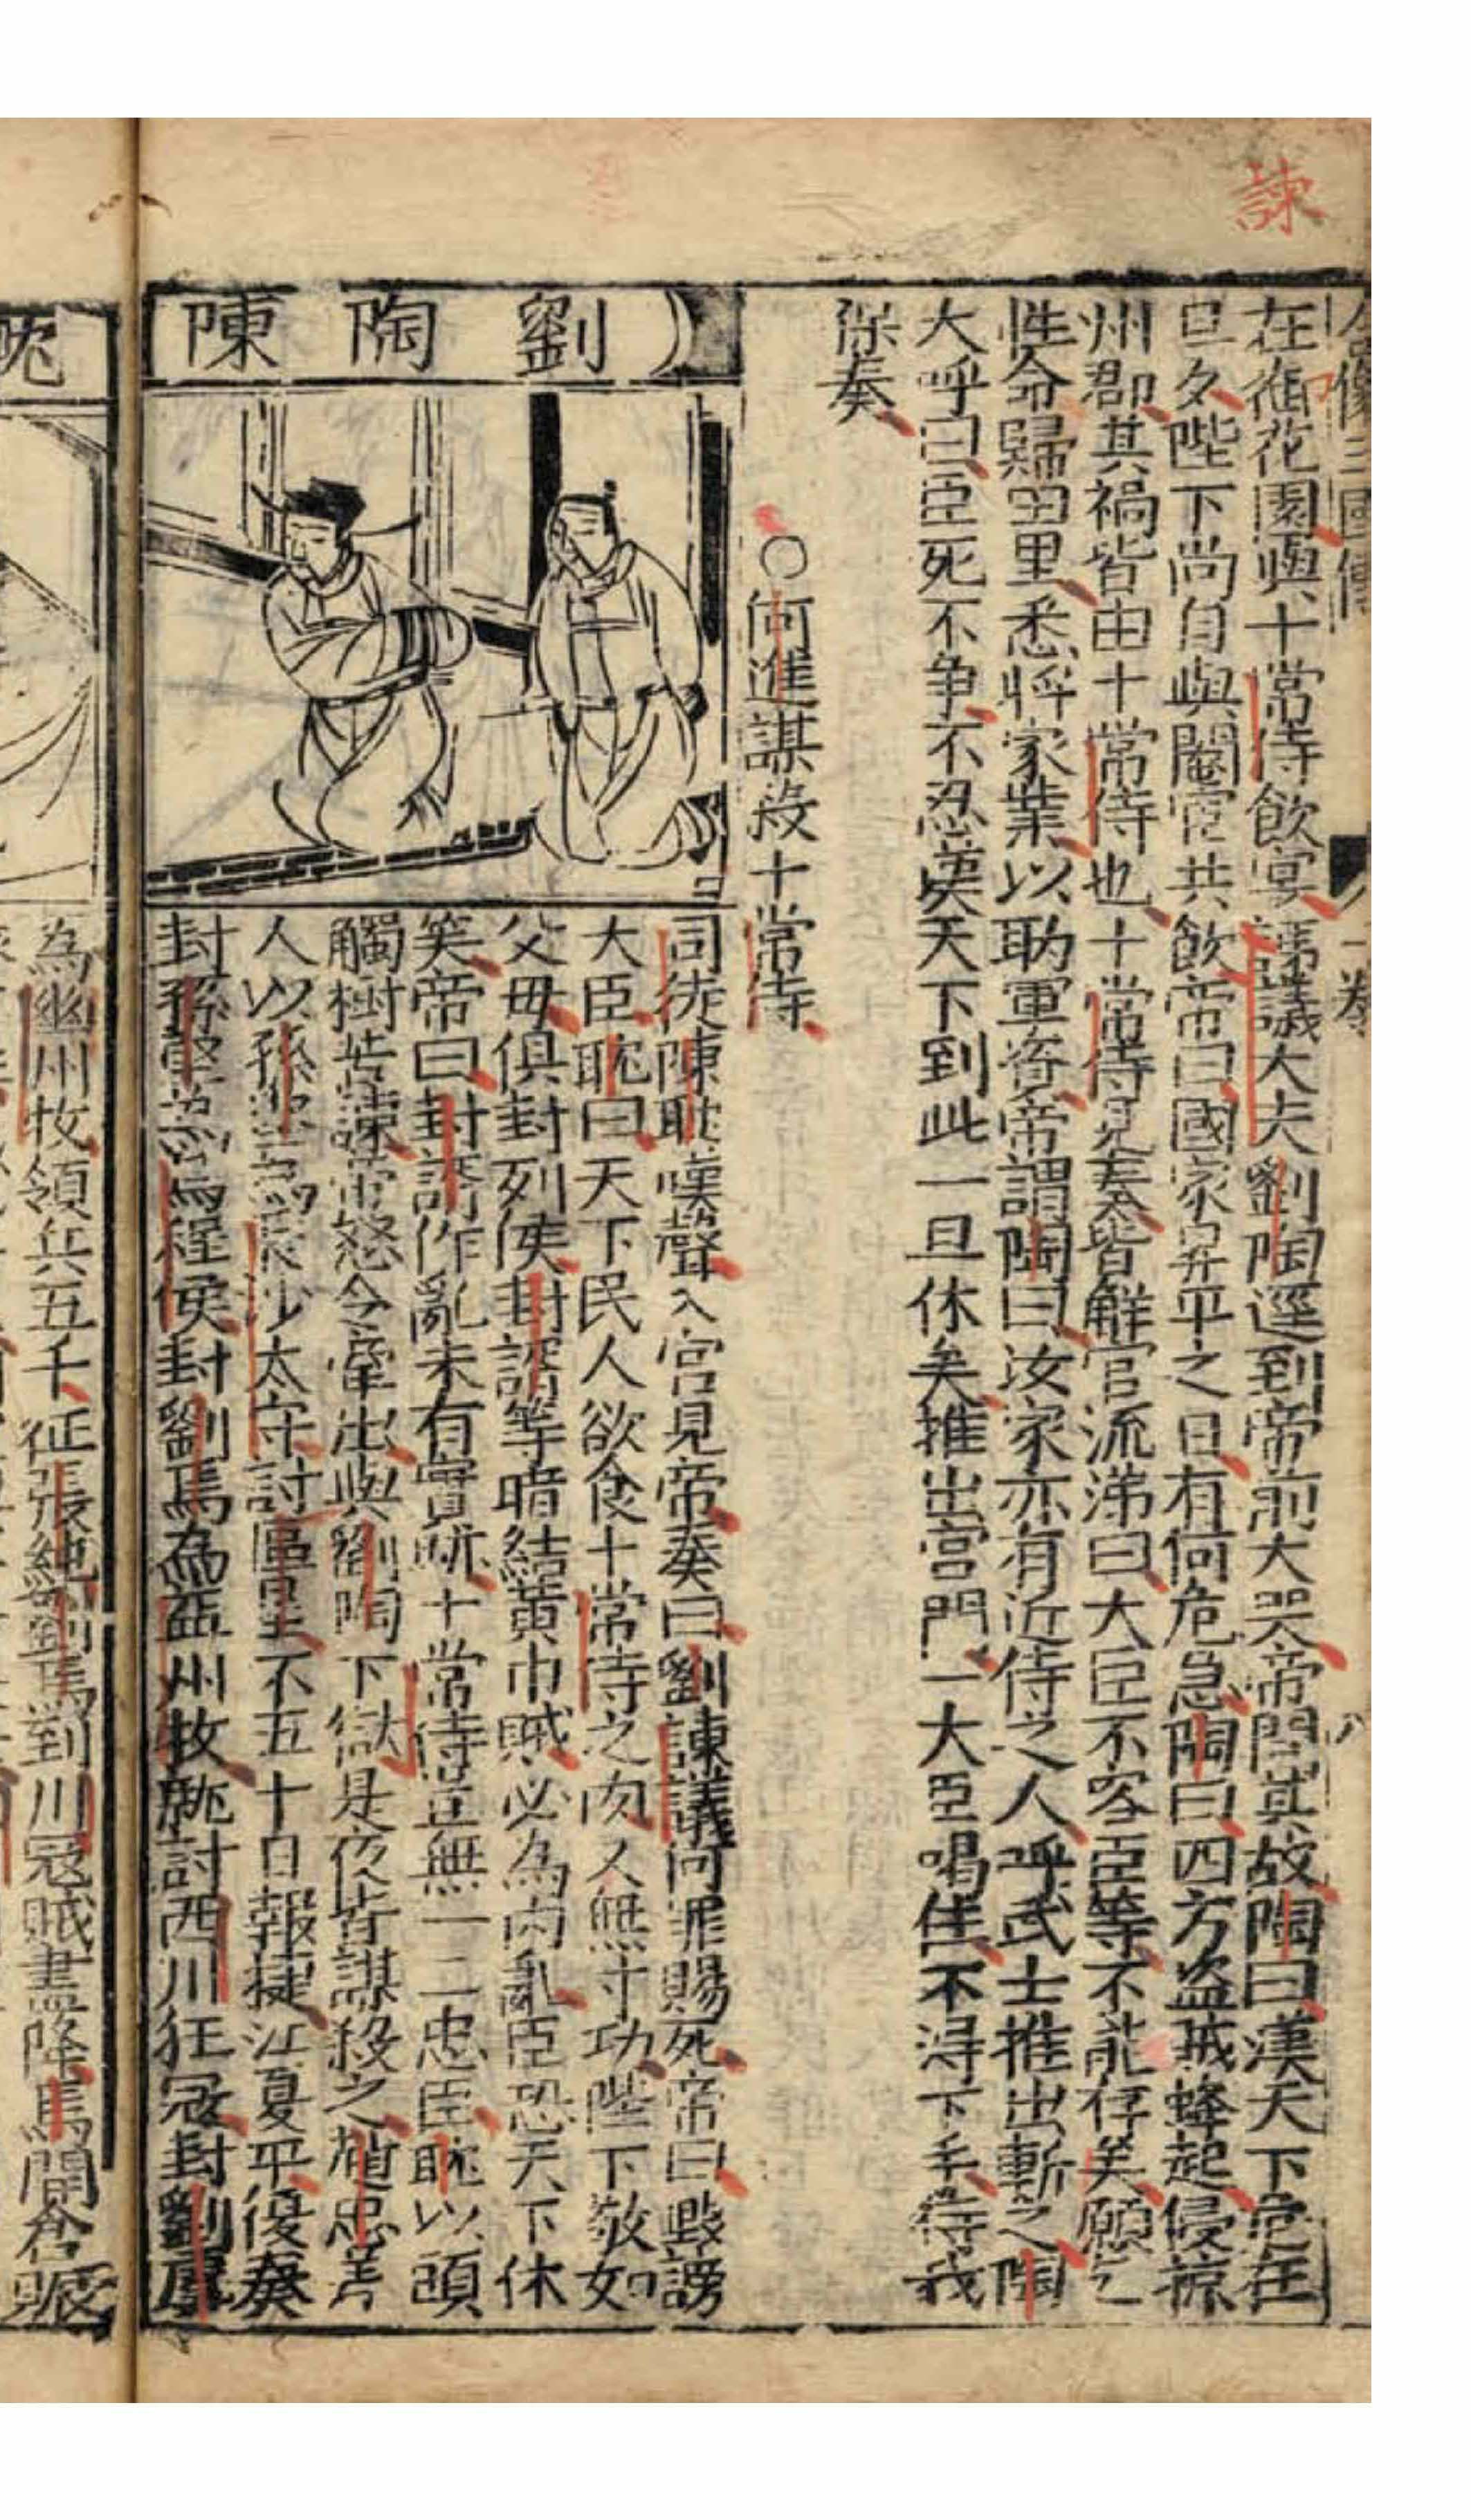 諫
全像三國傳 一卷 八
在御花園與十常侍飲宴諫議大夫劉陶逕到帝前大哭帝問其故陶曰漢天下危在
旦夕陛下尚自與閹宦共飲帝曰國家昇平之日有何危急陶曰四方盗賊蜂起侵掠
州郡其禍皆由十常侍也十常侍見奏皆觧官流涕曰大臣不容臣等不能存矣願乞
性命歸田里悉將家業以助軍資帝謂陶曰汝家亦有近侍之人呼武士推出斬之陶
大呼曰臣死不争不忍漢天下到此一旦休矣推出宫門一大臣喝住不得下手待我
保奏
○何進謀殺十常侍
劉陶陳
司徒陳耽嘆聲入宫見帝奏曰劉諫議何罪賜死帝曰毀謗
大臣耽曰天下民人欲食十常侍之肉又無寸功陛下敬如
父母俱封列侯封諝等暗結黄巾賊必為内亂臣恐天下休
矣帝曰封諝作亂未有實跡十常侍豈無一二忠臣耽以頭
觸樹苦諫帝怒令牽出與劉陶下獄是夜皆謀殺之
人以孫堅為長沙太守討區星不五十日報捷江夏平復奏
封孫堅為烏程侯封劉焉為益州牧就討西川狂冦封劉虞
為幽州牧領兵五千征張純劉焉到川冦賊盡降焉開倉賑